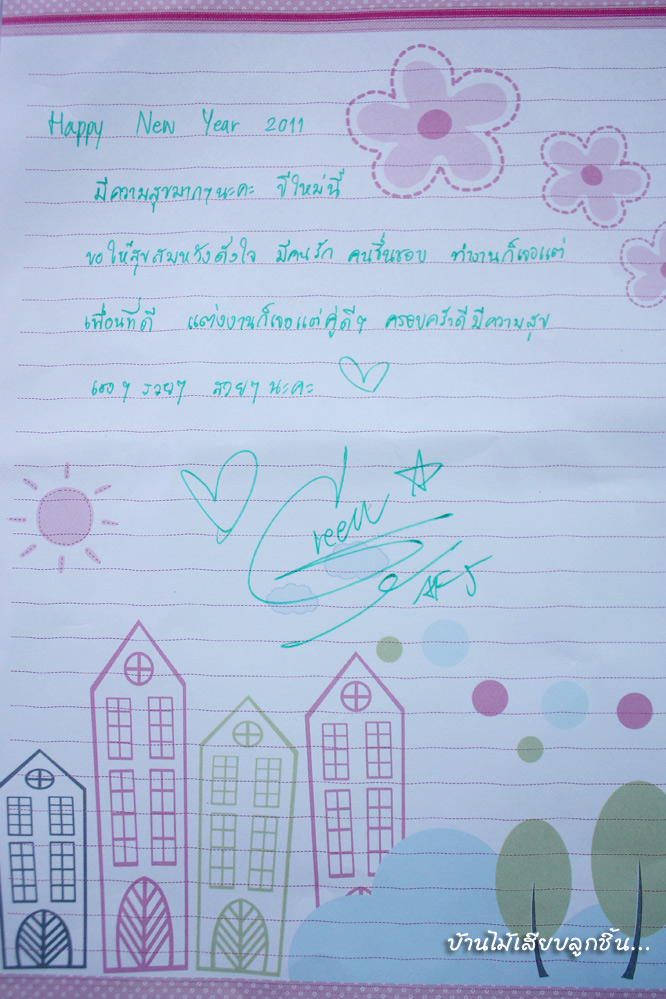 Happy New Year 2011
มีความสุขมากๆนะคะ ปีใหม่นี้
ขอให้สุขสมหวังดั่งใจ มีคนรัก คนชื่นชอบ ทำงานก็เจอแต่
เพื่อนที่ดี แต่งงานก็เจอแต่คู่ดีๆ ครอบครัวดีมีความสุข
เฮงๆ รวยๆ สวยๆ นะคะ
Green
AF5
บ้านไม้เสียบลูกชิ้น...